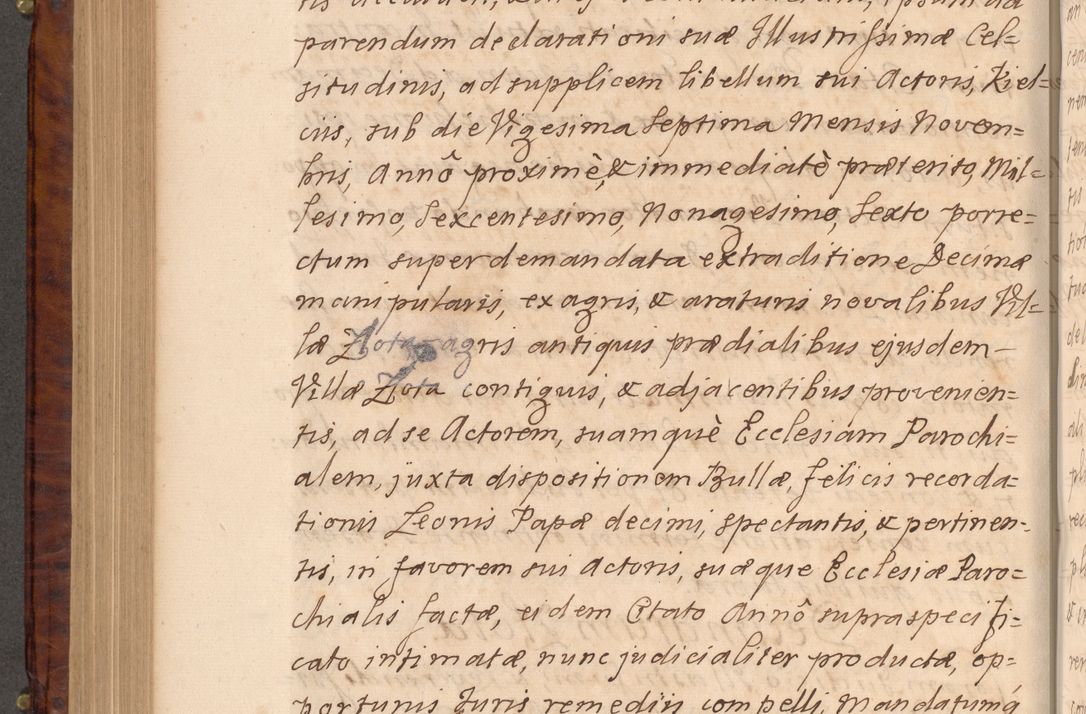 parendum declarationi suæ Illustrissimæ Cel=
situdinis, ad supplicem libellum sui Actoris, Kiel=
ciis, sub die Vigesima Septima Mensis Novem=
bris, Annô proximè, & immediatè præterito, Mil=
lesimo, Sexcentesimo, Nonagesimo, Sexto porre=
ctum super demandata extraditione Decimæ
manipularis, ex agris, & araturis novalibus Vil=
læ Zlota agris antiquis prædialibus ejusdem
Villæ Zlota contiguis, & adjacentibus provenien=
tis, ad se Actorem, suamquè Ecclesiam Parochi=
alem, juxta dispositionem Bullæ felicis recorda=
tionis Leonis Papæ decimi, spectantis, & pertinen=
tis, in favorem sui Actoris, suæque Ecclesiæ Paro=
chialis factæ, eidem Citato Annô supraspecifi=
cato intimatæ, nunc judicialiter productæ, op=
portunis Juris remediis compelli, Mandatumq́